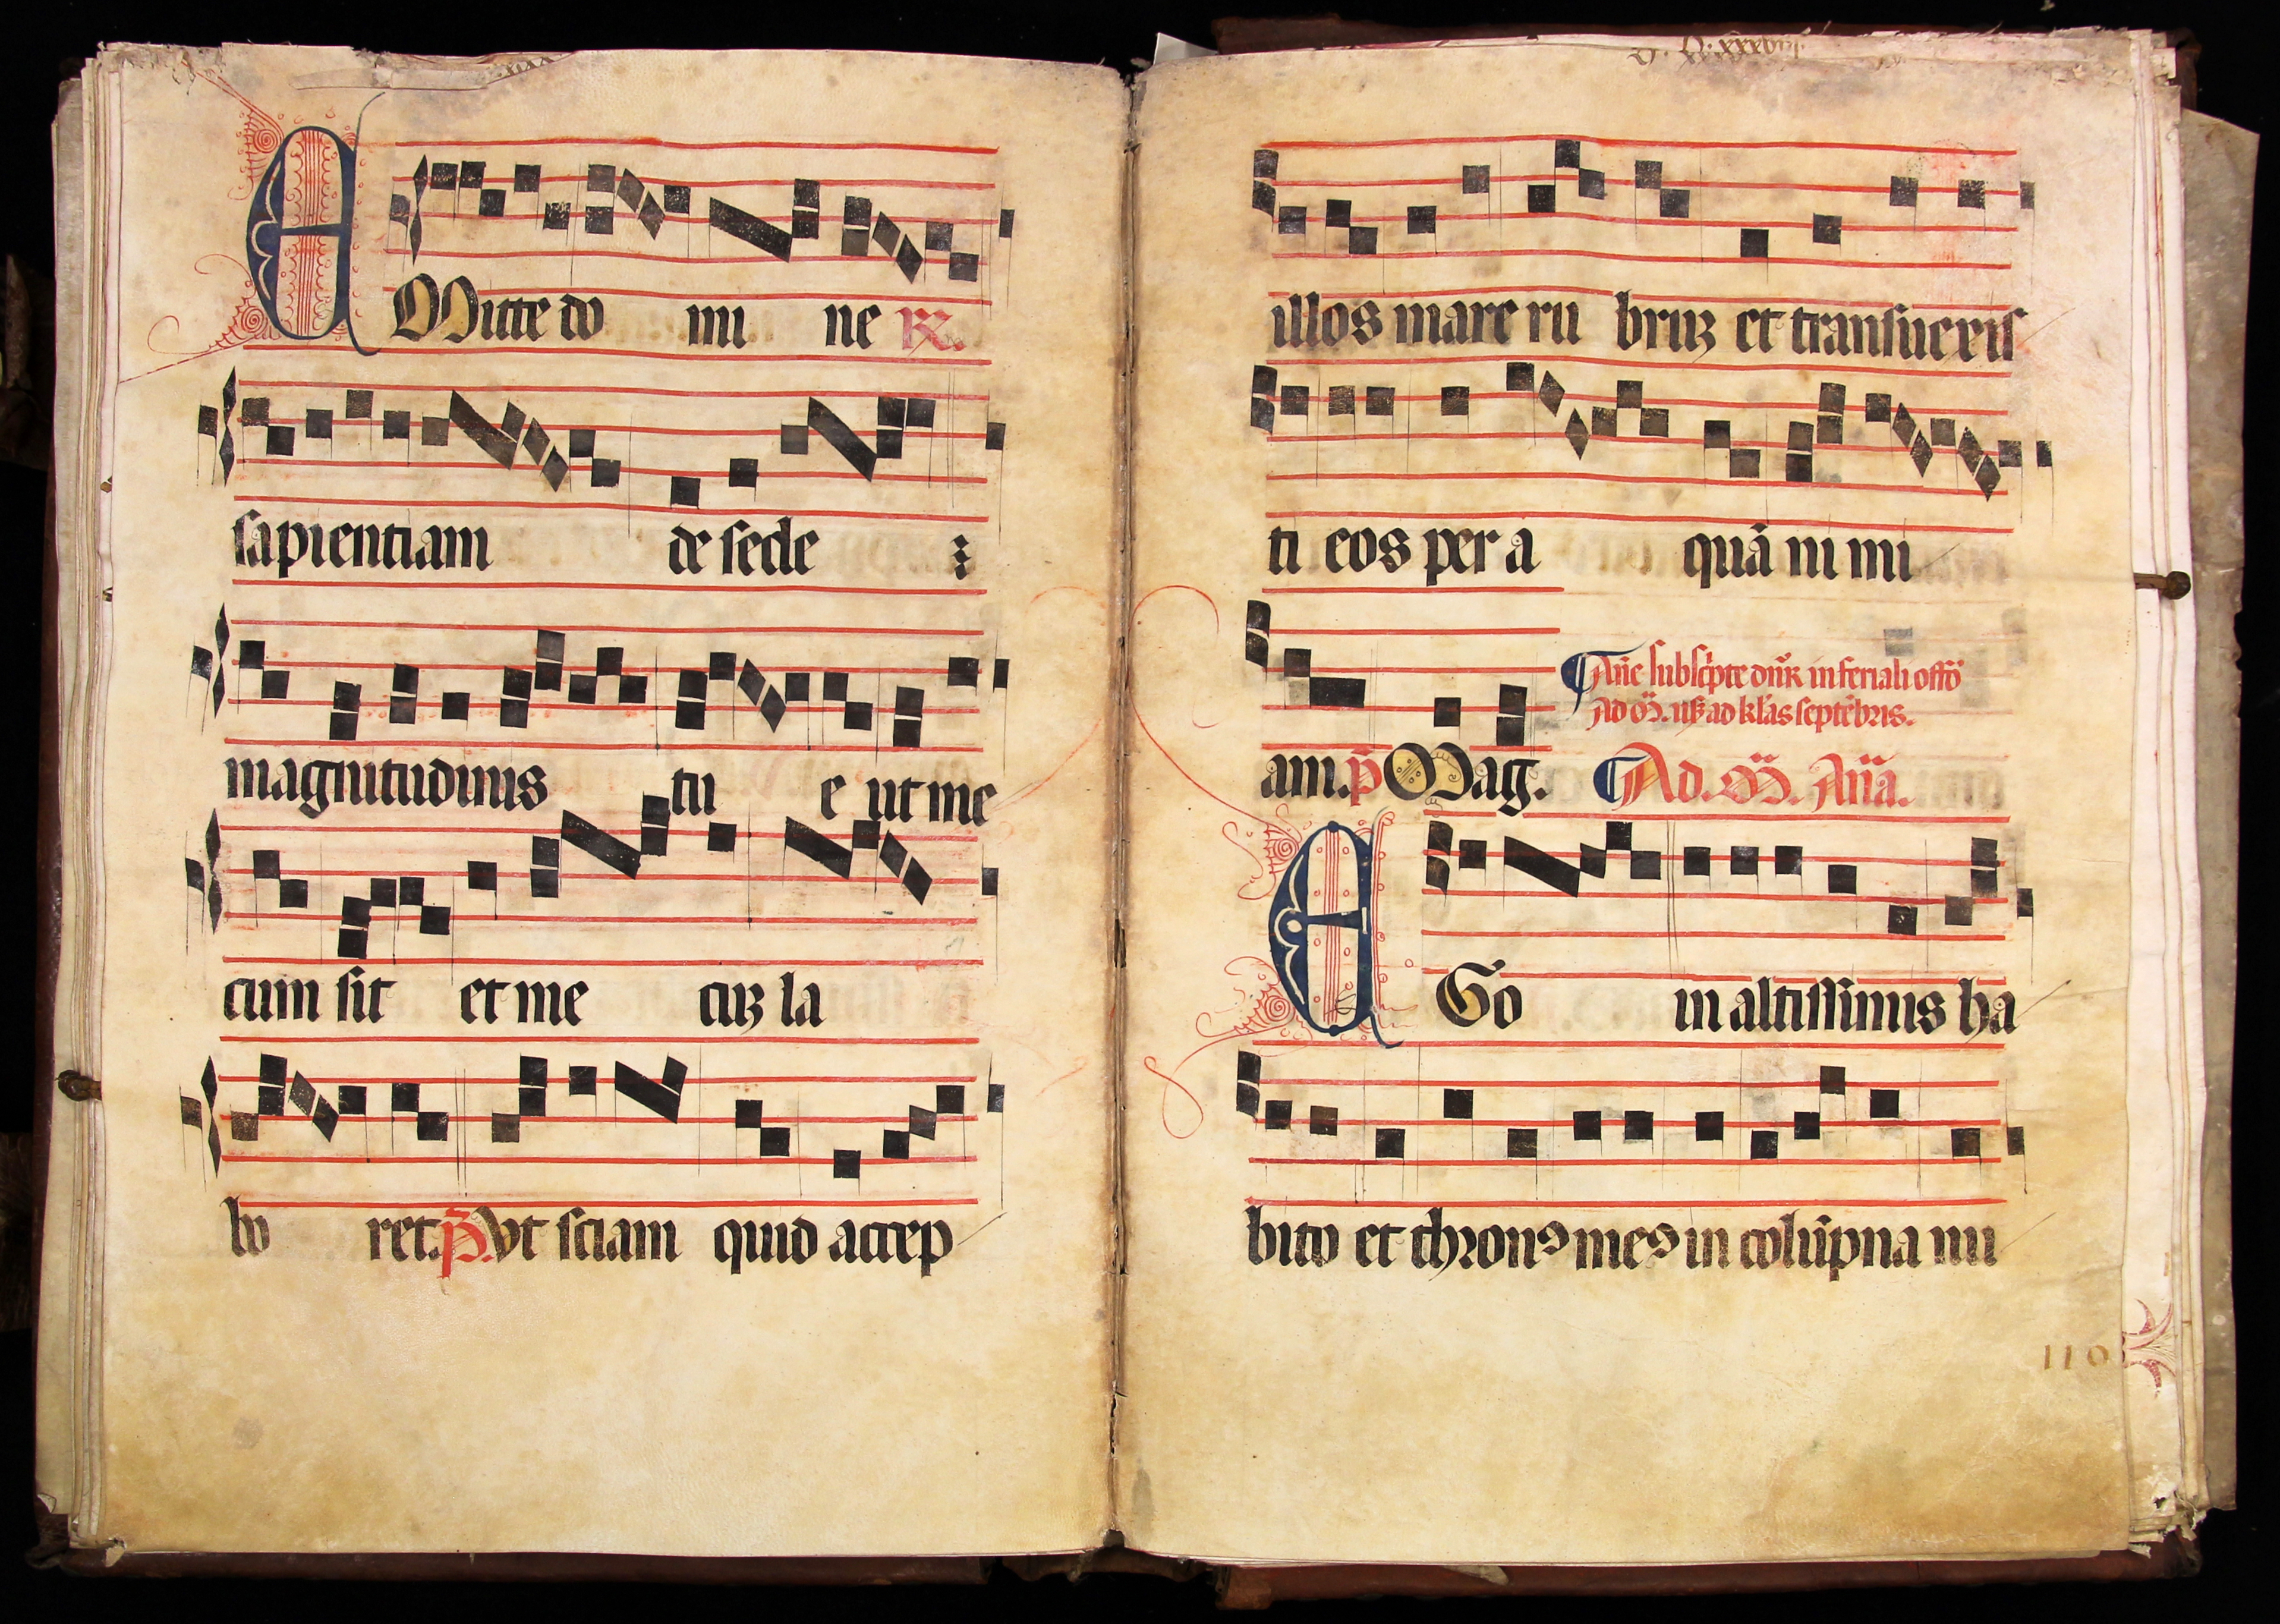 EMitte do mi ne R̃.
sapientiam de sede
magnitudinis tu e ut me
cum sit et me cuꝫ la
bo ret. p̃. Vt sciam quid accep
illos mare ru bruꝫ et transuexis
ti eos per a quã ni mi
Añe subscͥpte dñr in feriali offõ
Ad M̃. usqꝫ ad kl̃as septẽbris.
am. p̃ Mag. Ad. M̃. Añа.
EGo in altissimis ha
bito et thronꝰ meꝰ in colũpna nu
110